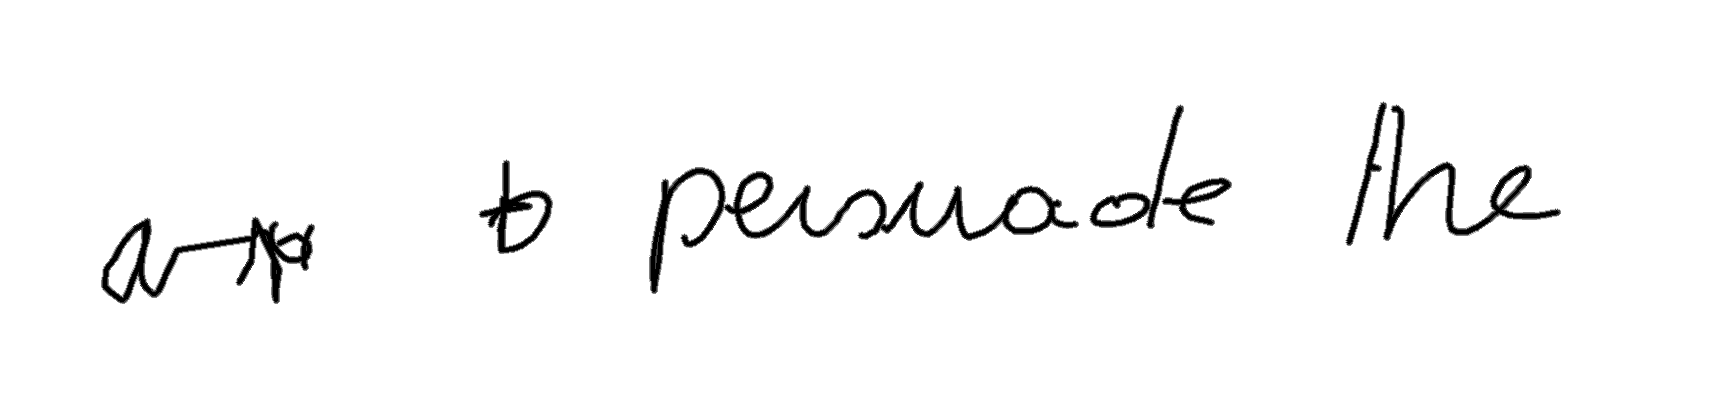 to persuade the